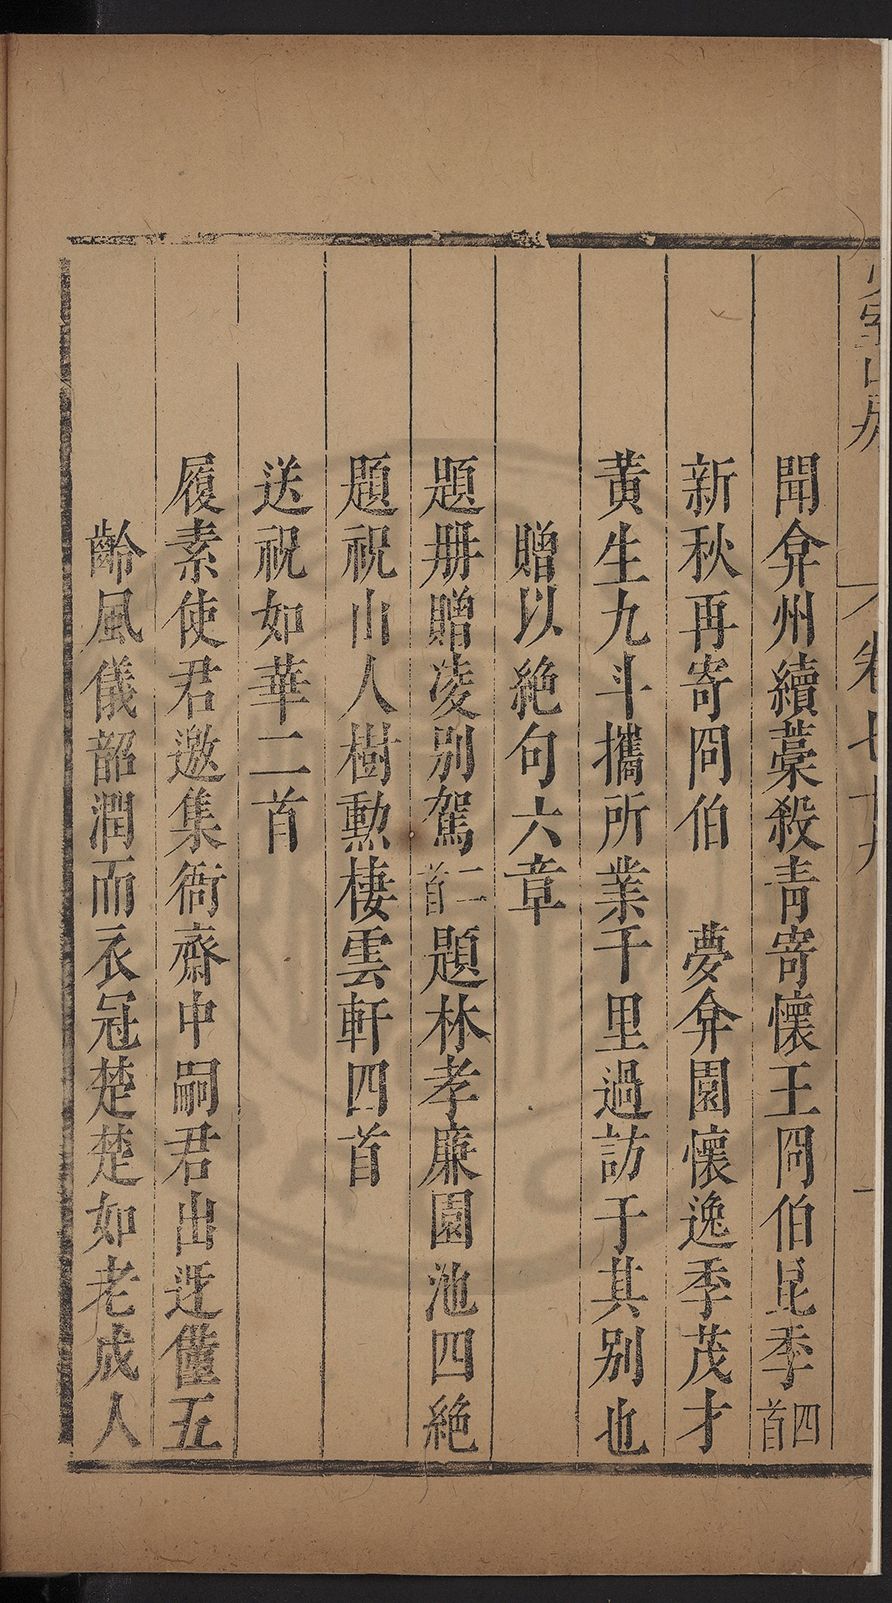 聞弇州續藁殺青寄懷王冏伯昆季四首
新秋再寄冏伯　夢弇園懷逸季茂才
黃生九斗攜所業千里過訪于其別也
贈以絕句六章
題册贈凌別駕二首題林孝廉園池四絕
題祝山人樹勲棲雲軒四首
送祝如華二首
履素使君邀集衙齋中嗣君出迓僅五
齡風儀韶潤而衣冠楚楚如老成人